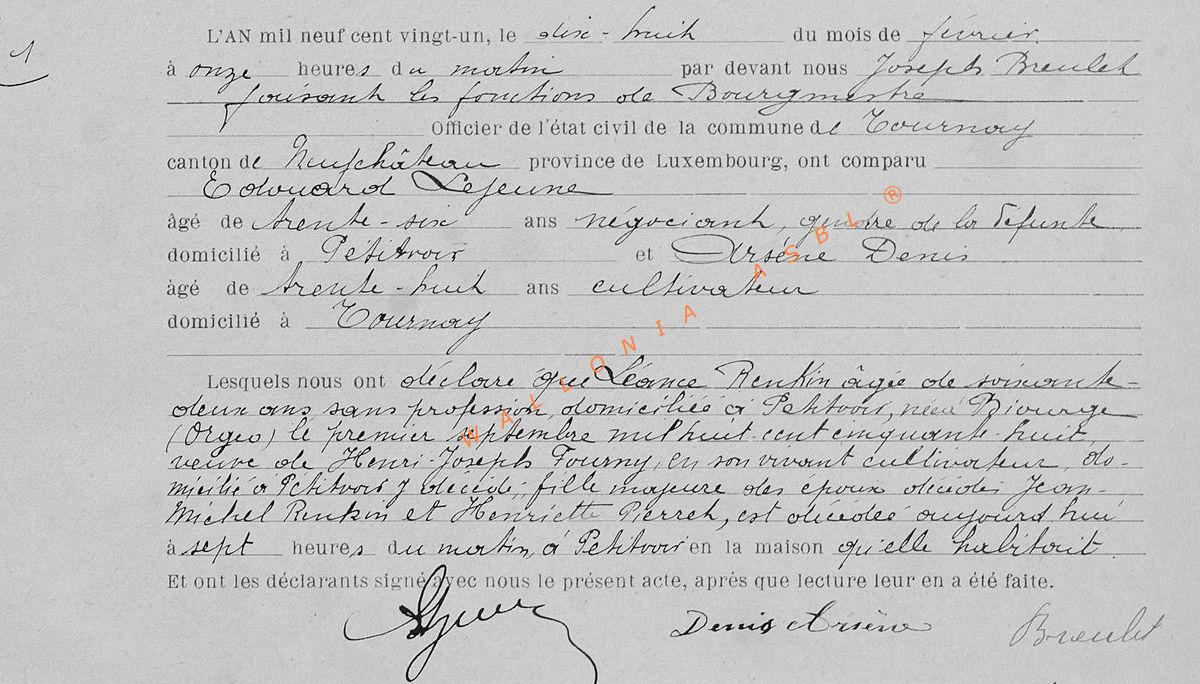 1
L'AN mil neuf cent vingt-un, le dix-huit du mois de février
à onze heures du matin par devant nous Joseph Breulet
faisant les fonctions de Bourgmestre
Officier de l'état civil de la commune de Tournay
canton de Neufchâteau province de Luxembourg, ont comparu
Edouard Lejeune
âgé de trente-six ans négociant, gendre de la défunte
domicilié à Petitvoir et Arsène Denis
âgé de trente-huit ans cultivateur
domicilié à Tournay
Lesquels nous ont déclaré que Léance Renkin âgée de soixante-
deux ans, sans profession, domiciliée à Petitvoir, née à Biourge
(Orgeo) le premier septembre mil huit-cent cinquante-huit,
veuve de Henri-Joseph Fourny, en son vivant cultivateur, do-
micilié à Petitvoir y décédé; fille majeure des époux décédés Jean-
Michel Renkin et Henriette Pierret, est décédée aujourd'hui
à sept heures du matin, à Petitvoir en la maison qu'elle habitait
Et ont les déclarants signé avec nous le présent acte, après que lecture leur en a été faite.
Denis Arsène Breulet
WALLONIA ASBL ®